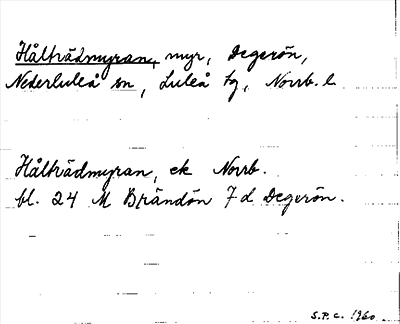 Hålträdmyran, myr, Degerön,
Nederluleå sn, Luleå tg, Norrb. l.
Hålträdmyran, ek Norrb.
bl. 24 M Brändön 7 d Degerön.
S.P.C. 1960